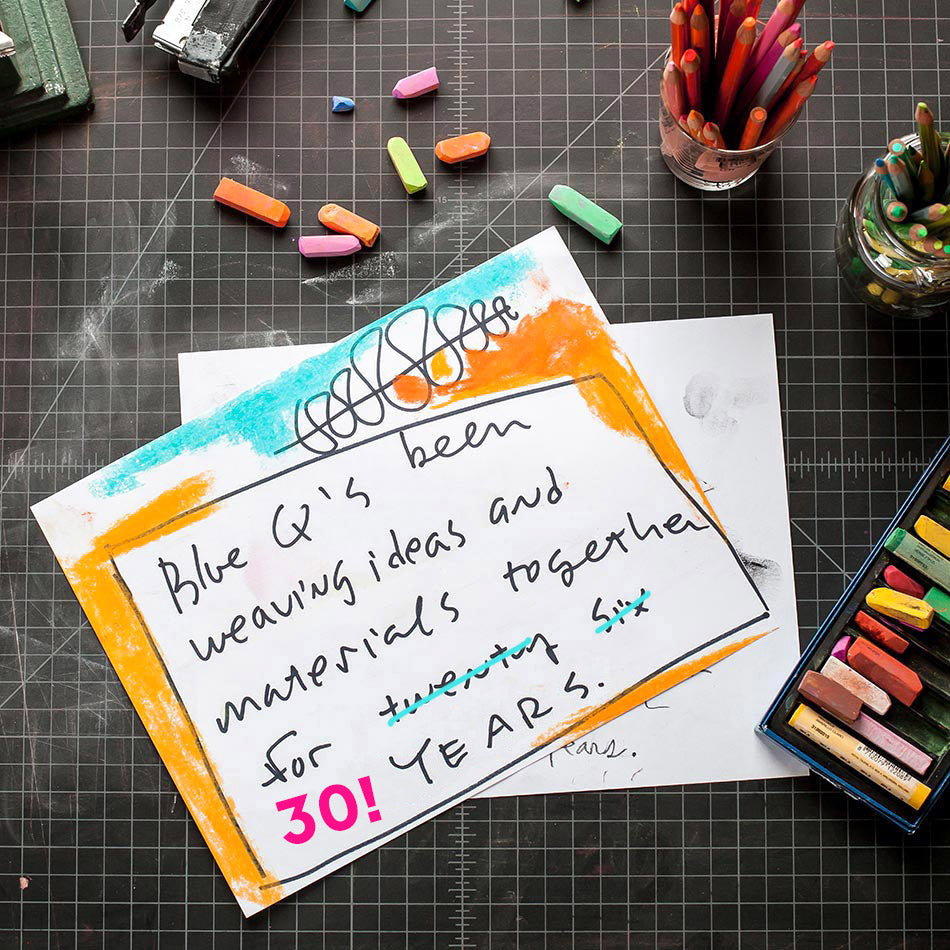 Blue Q's been
weaving ideas and
materials together
for twenty six
30! YEARS.
years.
15